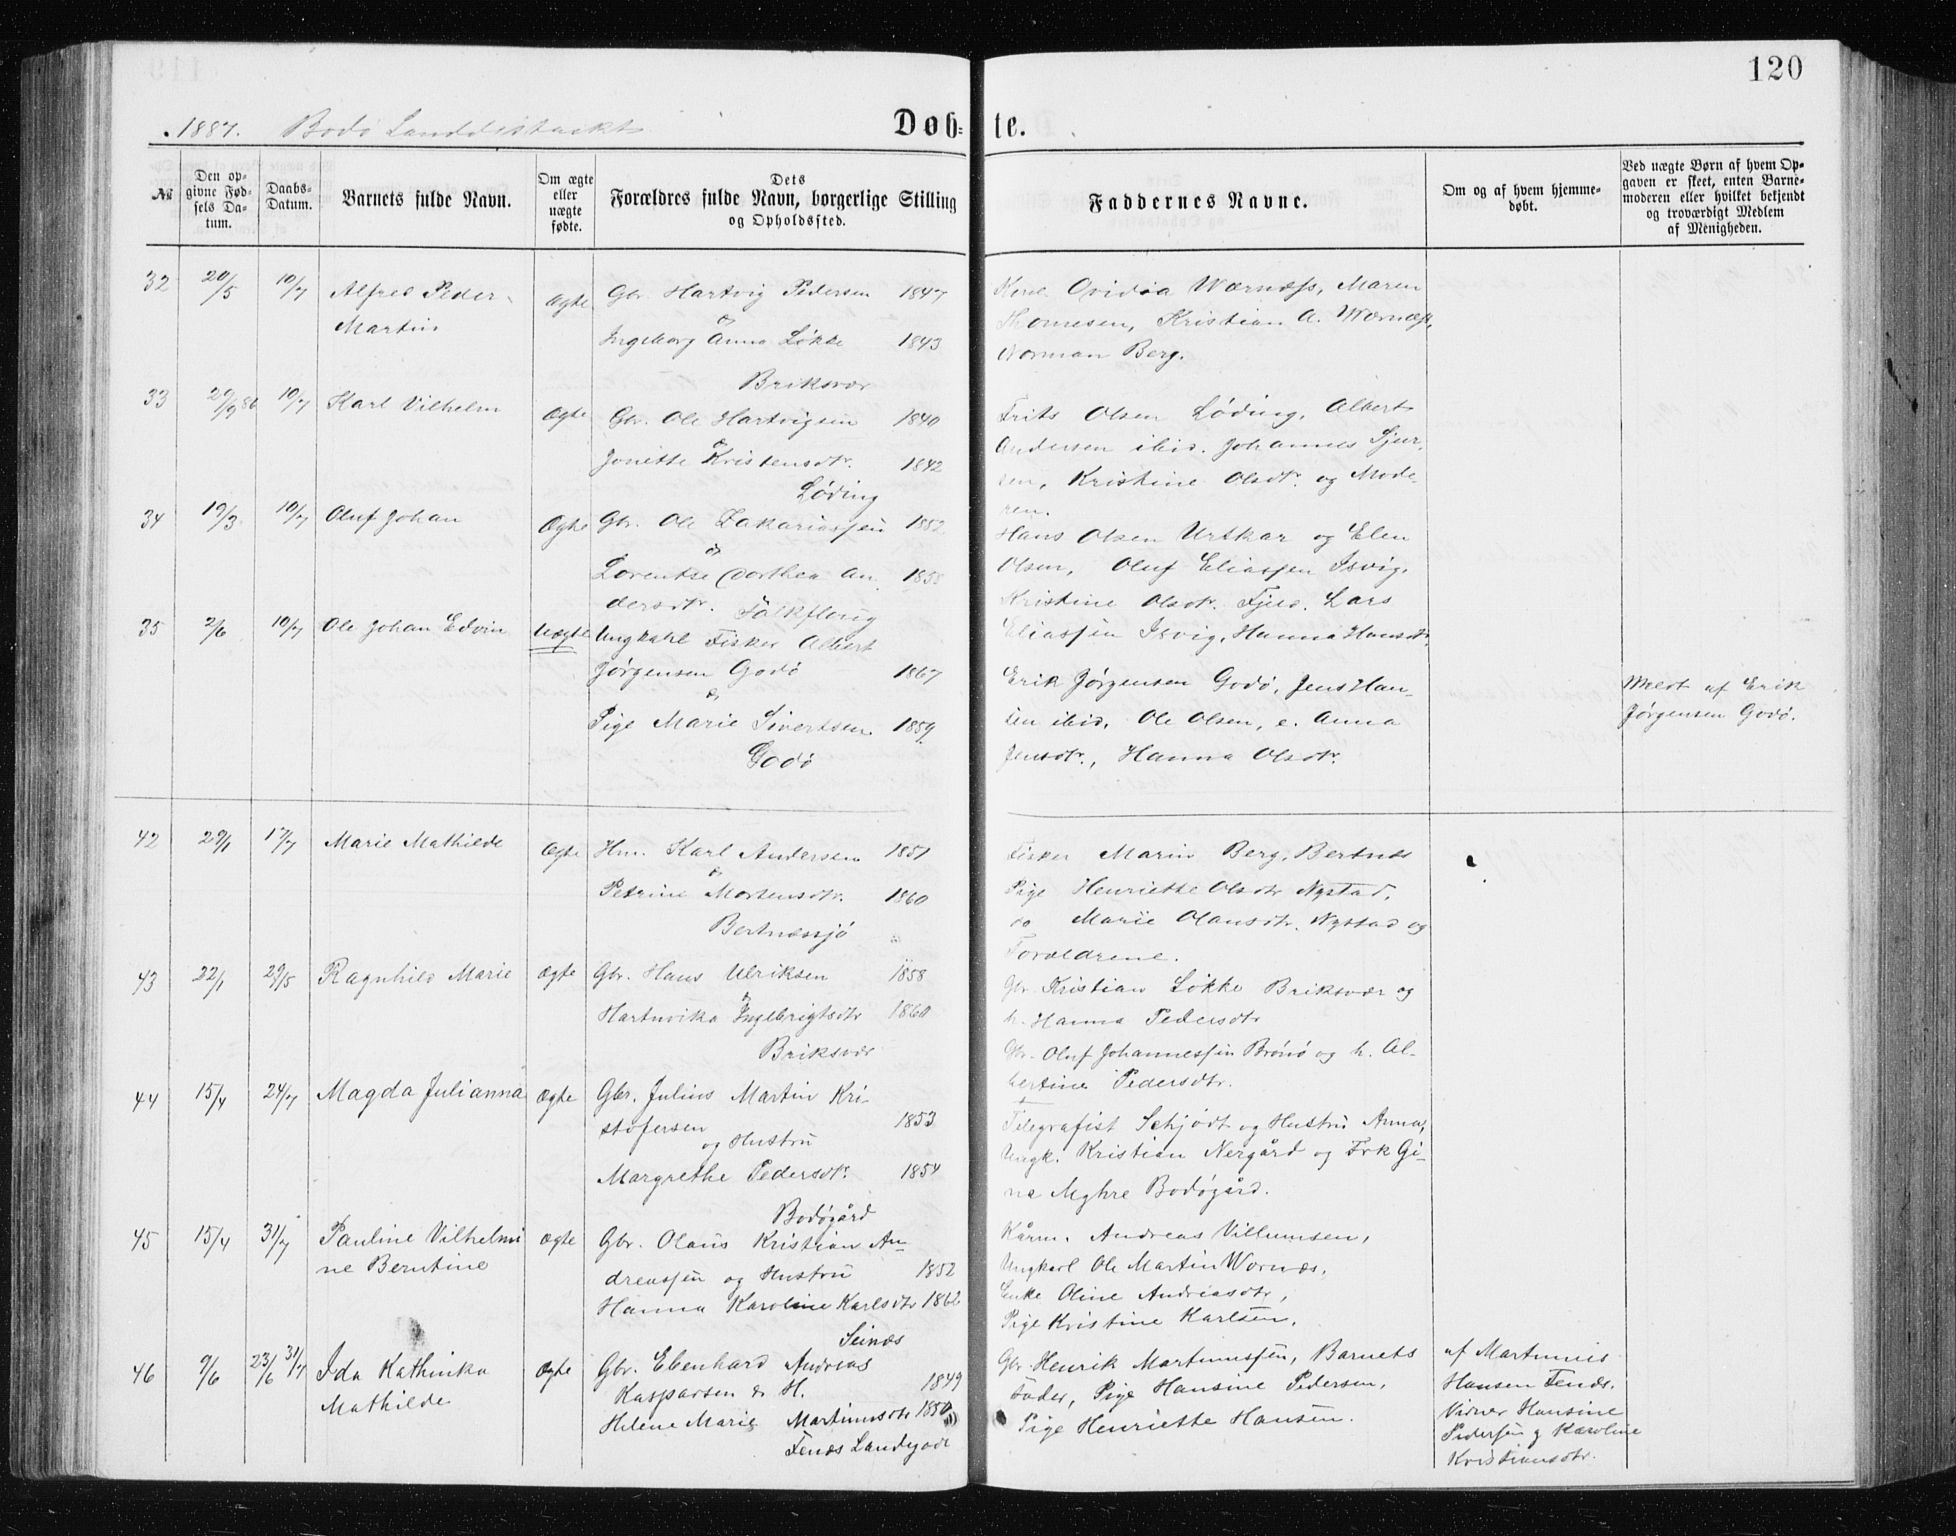 120
1887. Bodø Landdistrikt
Døb-te.
№
Den op-
givne Fød-
sels Da-
tum.
Daabs-
Datum.
Barnets fulde Navn.
Om ægte
eller
uægte
fødte.
Dets
Forældres fulde Navn, borgerlige Stilling
og Opholdssted.
Faddernes Navne.
Om og af hvem hjemme-
døbt.
Ved uægte Børn af hvem Op-
gaven er skeet, enten Barne-
moderen eller hvilket bekjendt
og troværdigt Medlem
af Menigheden.
32 20/5 10/7 Alfred Peder
Martin
Ægte Gbr. Hartvig Pedersen 1847
&
Ingeborg Anna Løkke 1843
Briksvær
Ovidia Wærnæss, Maren
Thomesen, Kristian A. Wærnæss,
Norman Berg.
33 29/9 86 10/7 Karl Vilhelm
Ægte Gbr. Ole Hartvigsen 1840
&
Jonette Kristensdtr. 1842
Løding
Frits Olsen Løding, Albert
Andersen ibid. Johannes Sjur-
sen, Kristine Olsdtr. og Mode-
ren.
34 19/3 10/7 Oluf Johan
Ægte Gbr. Ole Zakariassen 1852
&
Lorentse Dorthea An- 1858
dersdtr.
Hans Olsen Urskar og Elen
Olsen, Oluf Eliassen Isvig,
Kristine Olsdtr. Fjeld. Lars
Eliassen Isvig, Hanna Hansdtr.
35 2/6 10/7 Ole Johan Edvin
Uægte Ungkahl Fisker Albert
Jørgensen Godø 1867
&
Pige Marie Sivertsen 1859.
Godø
Erik Jørgensen Godø, Jens Han-
sen ibid, Ole Olsen, e. Anna
Jensdtr., Hanna Olsdtr.
Meldt af Erik
Jørgensen Godø.
42 29/1 17/7 Marie Mathilde
Ægte Hm. Karl Andersen 1851
&
Petrine Mortensdtr. 1860
Bertnæssjø
Fisker Marin Berg, Bertnæs
Pige Henriette Olsdtr Nystad,
do Marie Olausdtr. Nystad og
Forældrene.
43 22/1 29/5 Ragnhild Marie
Ægte Gbr. Hans Ulriksen 1858
&
Hartvika Ingebrigtsdtr 1860
Briksvær
Gbr. Kristian Løkke Briksvær og
h. Hanna Pedersdtr
Gbr. Oluf Johannessen Brønø og h. Al-
bertine Pedersdtr.
44 15/4 24/7 Magda Julianna
Ægte Gbr. Julius Martin Kri-
stofersen 1853
og Hustru
Margrethe Pedersdtr. 1854
Bodøgård
Telegrafist Schjødt og Hustru Anna,
Ungk. Kristian Nergård og Frk Gi-
na Myhre Bodøgård.
45 15/4 31/7 Pauline Vilhelmi
ne Berntine
Ægte Gbr. Olaus Kristian An-
dreassen og Hustru 1852
Hanna Karoline Karlsdtr 1862
Seinæs
Kårm. Andreas Villumsen,
Ungkarl Ole Martin Wornæs,
Enke Oline Andreasdtr,
Pige Kristine Karlsen.
46 9/6 23/6 31/7 Ida Kathinka
Mathilde
Ægte Gbr. Ebenhard Andreas
Kasparsen & H. 1849
Helene Marie Martinusdtr 1850
Fenæs Landegode
Gbr. Henrik Martinussen, Barnets
Fader, Pige Hansine Pedersen,
Pige Henriette Hansen.
af Martinus
Hansen Fenæs.
Vidner Hansine
Pedersen & Karoline
Kristiansdtr.